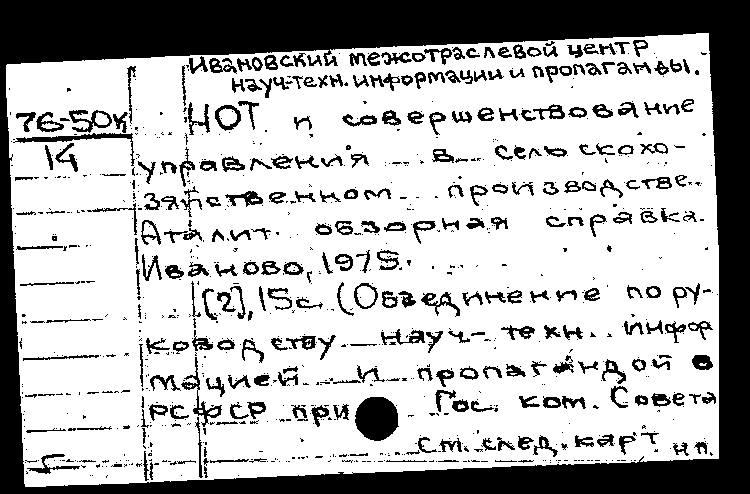 Ивановский межотраслевой центр
науч-техн. информации и пропаганды.
76-50к
14
НОТ и совершенствование
управления в сельскохо-
зяйственном производстве.
Аналит. обзорная справка.
Иваново, 1975.
[2], 15с. (Объединение по ру-
ководству науч-техн. инфор
мацией и пропагандой в
РСФСР при Гос. ком. Совета
см. след. карт н п.